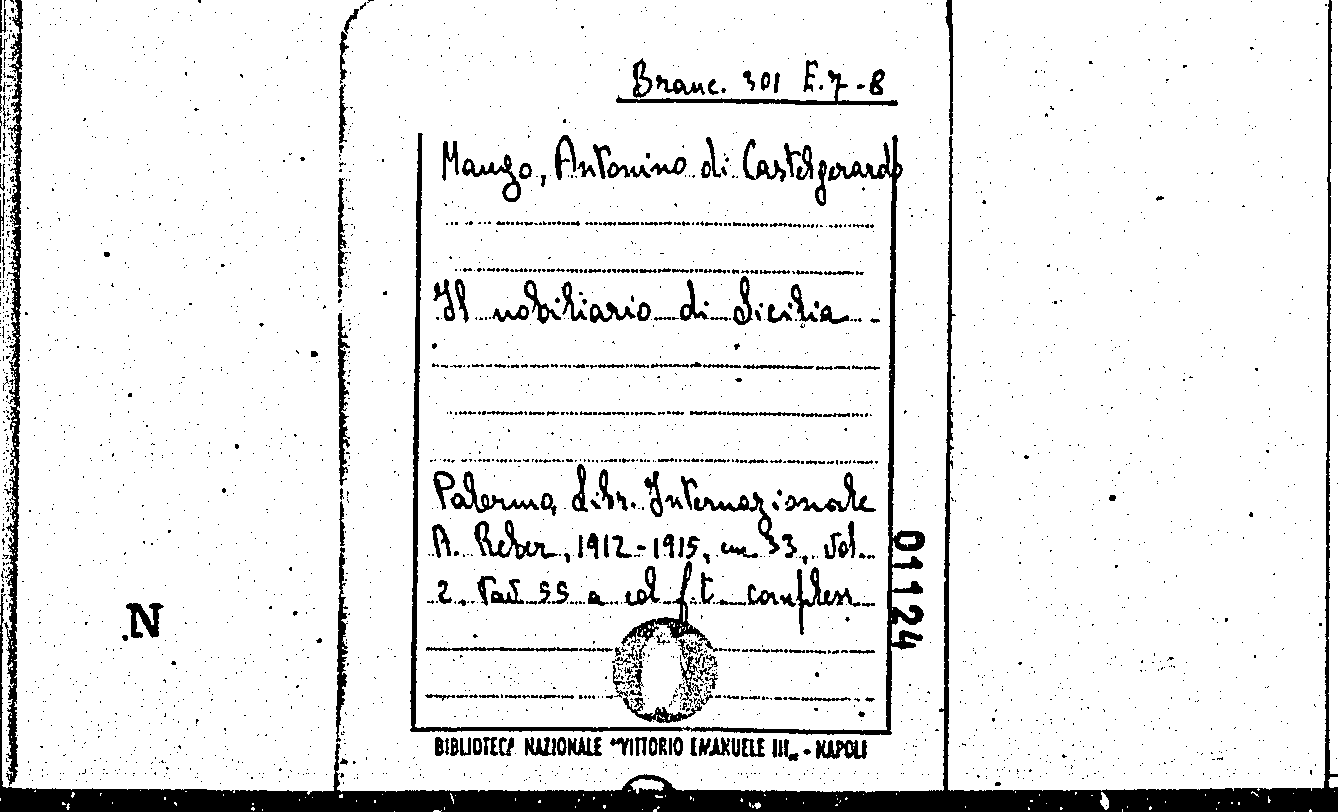 Branc. 301 E.7-8
Mango, Antonino di Castelgerardo
Il nobiliario di Sicilia.
Palermo, Libr. Internazionale
A. Reber, 1912-1915, cm 33, vol.
2. Tav 55 a col f.t. compless
01124
N
BIBLIOTECA NAZIONALE "VITTORIO EMANUELE III„ - NAPOLI